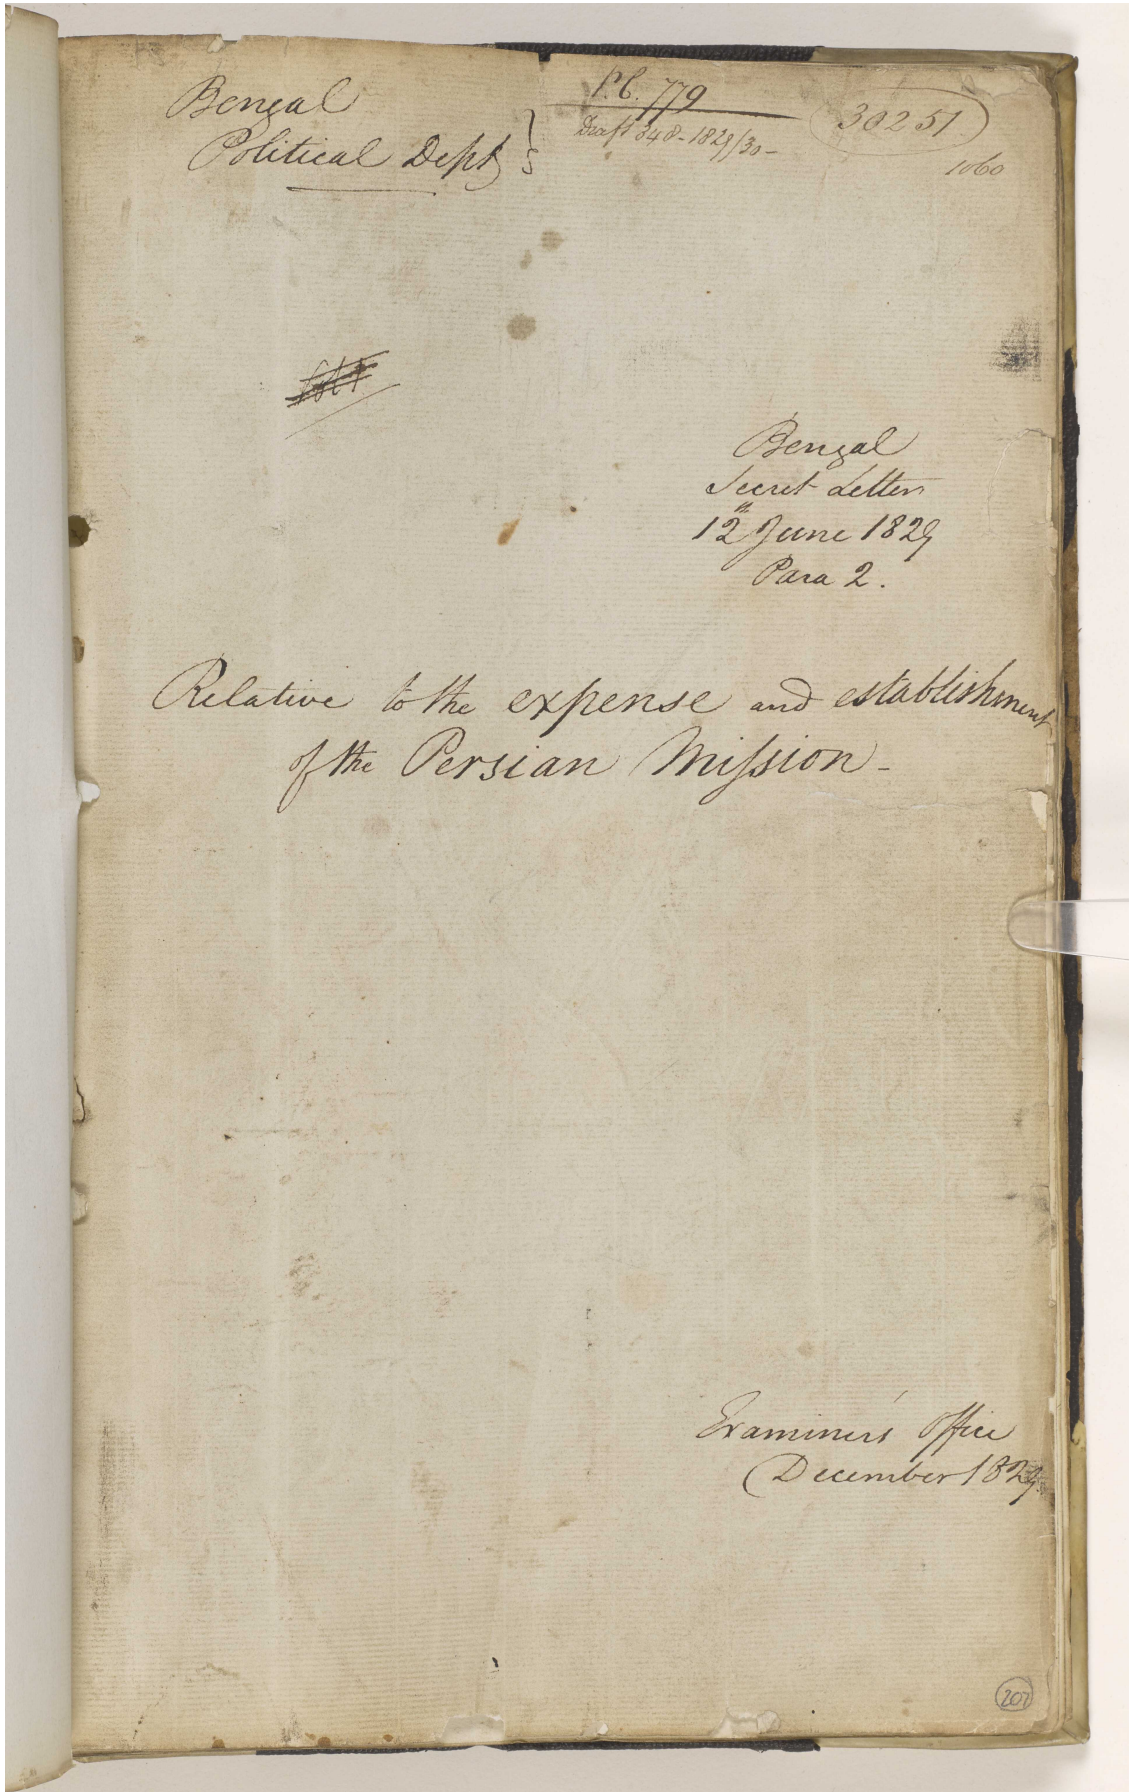 Bengal
Political Dept
P.C. 779
Draft 348 - 1829/30 -
30251
1060
Bengal
Secret Letter
12th June 1829
Para 2.
Relative to the expense and establishment
of the Persian Miſsion -
Examiner's Office
December 1829.